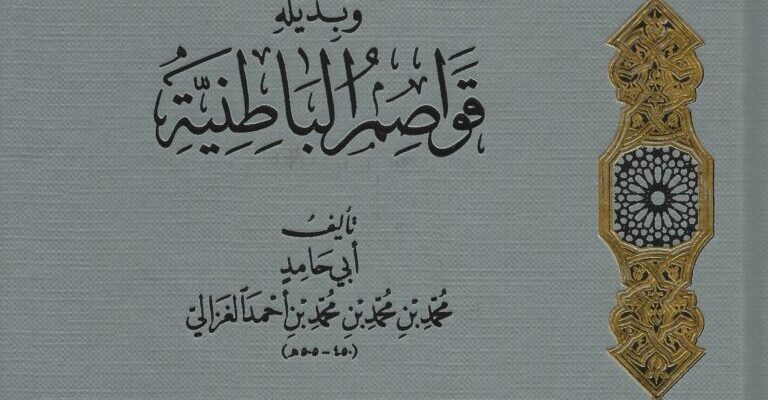 وبذيله
قَوَاصِمُ البَاطِنِيَّةِ
تأليفُ
أبي حَامِدٍ
مُحَمَّدِ بْنِ مُحَمَّدِ بْنِ مُحَمَّدِ بْنِ أَحْمَدَ الغَزَاليّ
(٤٥٠-٥٠٥هـ)